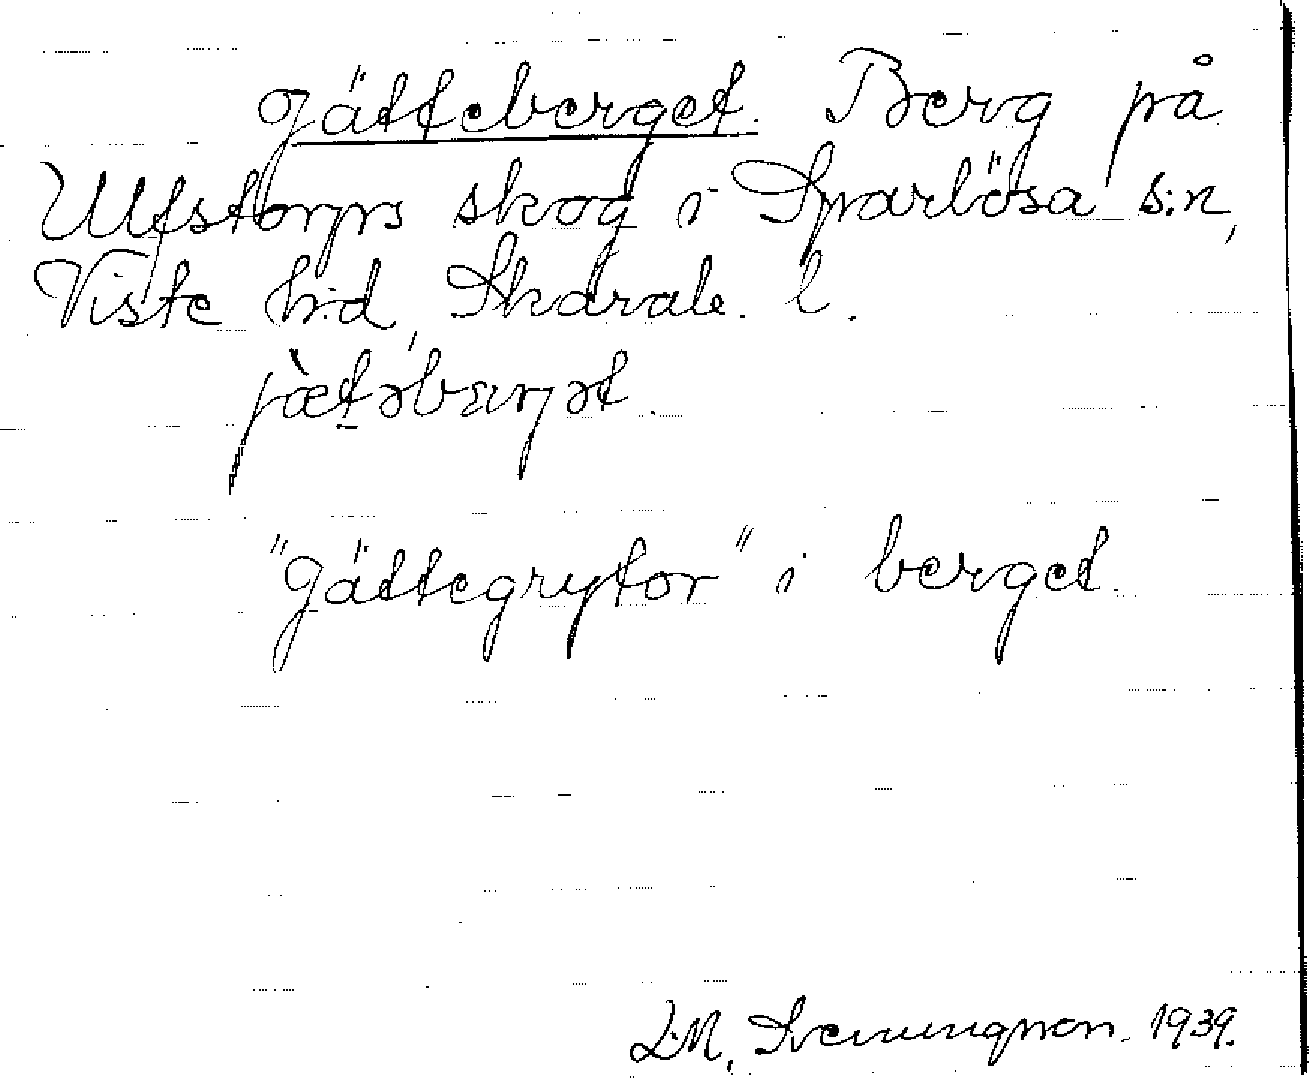 Jätteberget. Berg på
Ulfstorps skog i Sparlösa s:n,
Viste h:d, Skarab. l.
jæ̀təbærjət.
"Jättegrytor" i berget.
1939.